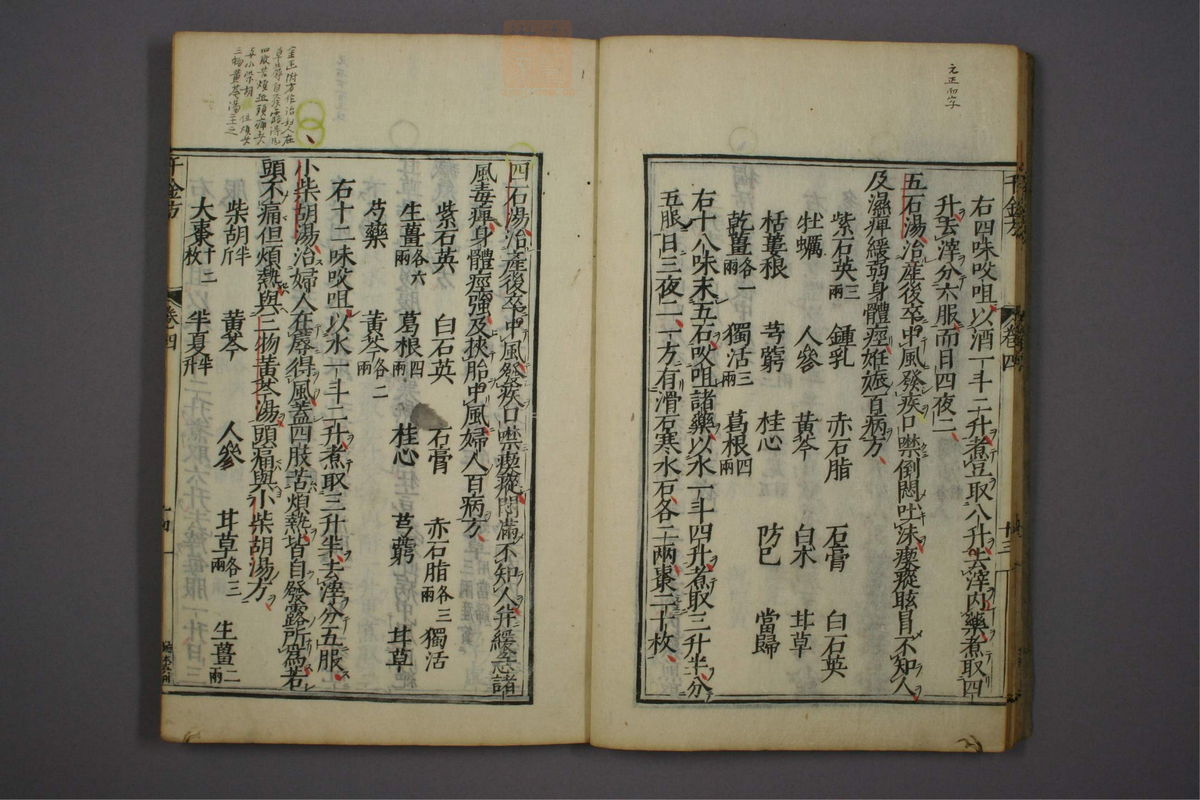 元正而字
右四味㕮咀以酒一斗二升煮豆取八升去滓内藥煮取四
升去滓分六服而日四夜二
五石湯治產後卒中風發疾口噤倒悶吐沫瘈瘲眩冒不知人
及濕痺緩弱身體痙妊娠百病方
紫石英三兩 鍾乳 赤石脂 石膏 白石英
牡蠣 人參 黃芩 白朮 甘草
栝蔞根 芎藭 桂心 防巳 當歸
乾薑各一兩 獨活三兩 葛根四兩
右十八味末五石㕮咀諸藥以水一斗四升煮取三升半分
五服日三夜二一方有滑石寒水石各二兩棗二十枚
千金方 卷四 十三
四石湯治產後卒中風發疾口噤瘈瘲悶滿不知人并緩急諸
風毒痺身體痙強及挾胎中風婦人百病方
紫石英 白石英 石膏 赤石脂各三兩 獨活
生薑各六兩 葛根四兩 桂心 芎藭 甘草
芍藥 黃芩各二兩
右十二味㕮咀以水一斗二升煮取三升半去滓分五服
小柴胡湯治婦人在蓐得風蓋四肢苦煩熱皆自發露所爲若
頭不痛但煩熱與三物黃芩湯頭痛與小柴胡湯方
柴胡半斤 黃芩 人參 甘草各三兩 生薑二兩
大棗十二枚 半夏半升
千金方 卷四
金匱附方作治婦人在
草蓐自發露得風
四肢苦煩熱頭痛者
與小柴胡
三物黃芩湯主之